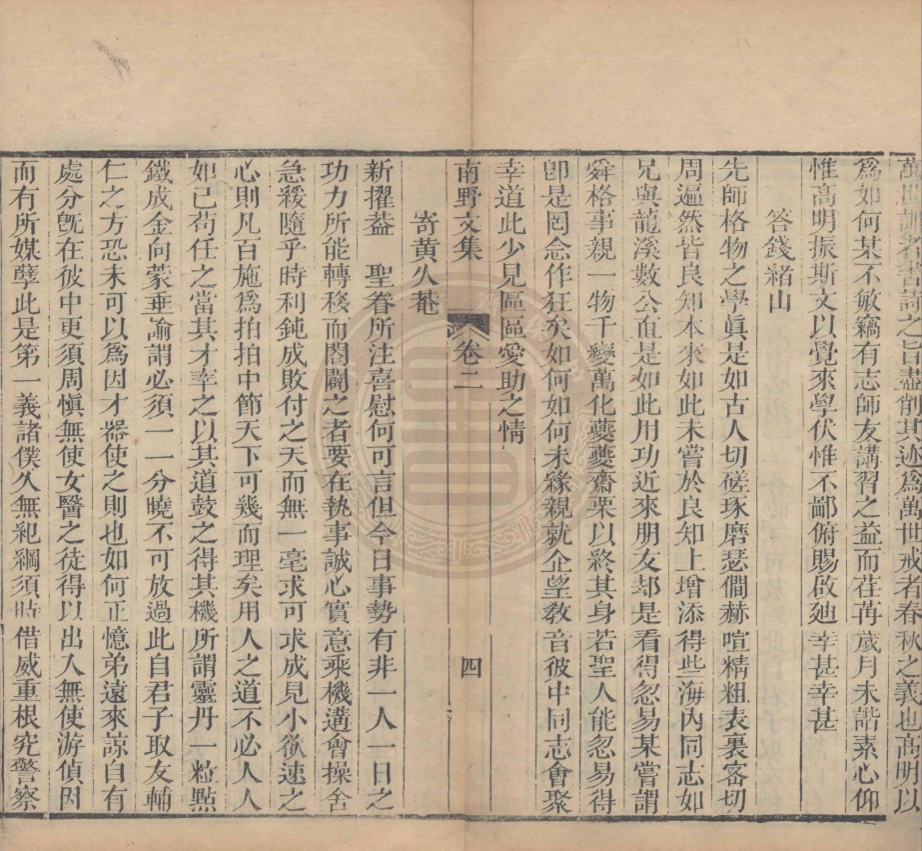 萬世訓者書誦之旨盡削其迹爲萬世戒者春秋之義也高明以
爲如何某不敏竊有志師友講習之益而荏苒歲月未諧素心仰
惟高明振斯文以覺來學伏惟不鄙俯賜啟廸幸甚幸甚
答錢緒山
先師格物之學眞是如古人切磋琢磨瑟僩赫喧精粗表裏密切
周遍然皆良知本來如此未嘗於良知上增添得些海內同志如
兄與龍溪數公直是如此用功近來朋友却是看得忽易某嘗謂
舜格事親一物千變萬化夔夔齋栗以終其身若聖人能忽易得
卽是罔念作狂矣如何如何未緣親就企望敎音彼中同志會聚
幸道此少見區區愛助之情
南野文集 卷二 四
寄黄久菴
新擢葢 聖眷所注喜慰何可言但今日事勢有非一人一日之
功力所能轉移而闔闢之者要在執事誠心實意乘機遘會操舍
急緩隨乎時利鈍成敗付之天而無一毫求可求成見小欲速之
心則凡百施爲拍拍中節天下可幾而理矣用人之道不必人人
如已苟任之當其才率之以其道鼓之得其機所謂靈丹一粒點
鐵成金向蒙垂諭謂必須一一分曉不可放過此自君子取友輔
仁之方恐未可以爲因才器使之則也如何正憶弟遠來諒自有
處分旣在彼中更須周愼無使女醫之徒得以出入無使游偵因
而有所媒孽此是第一義諸僕久無紀綱須時借威重根究警察